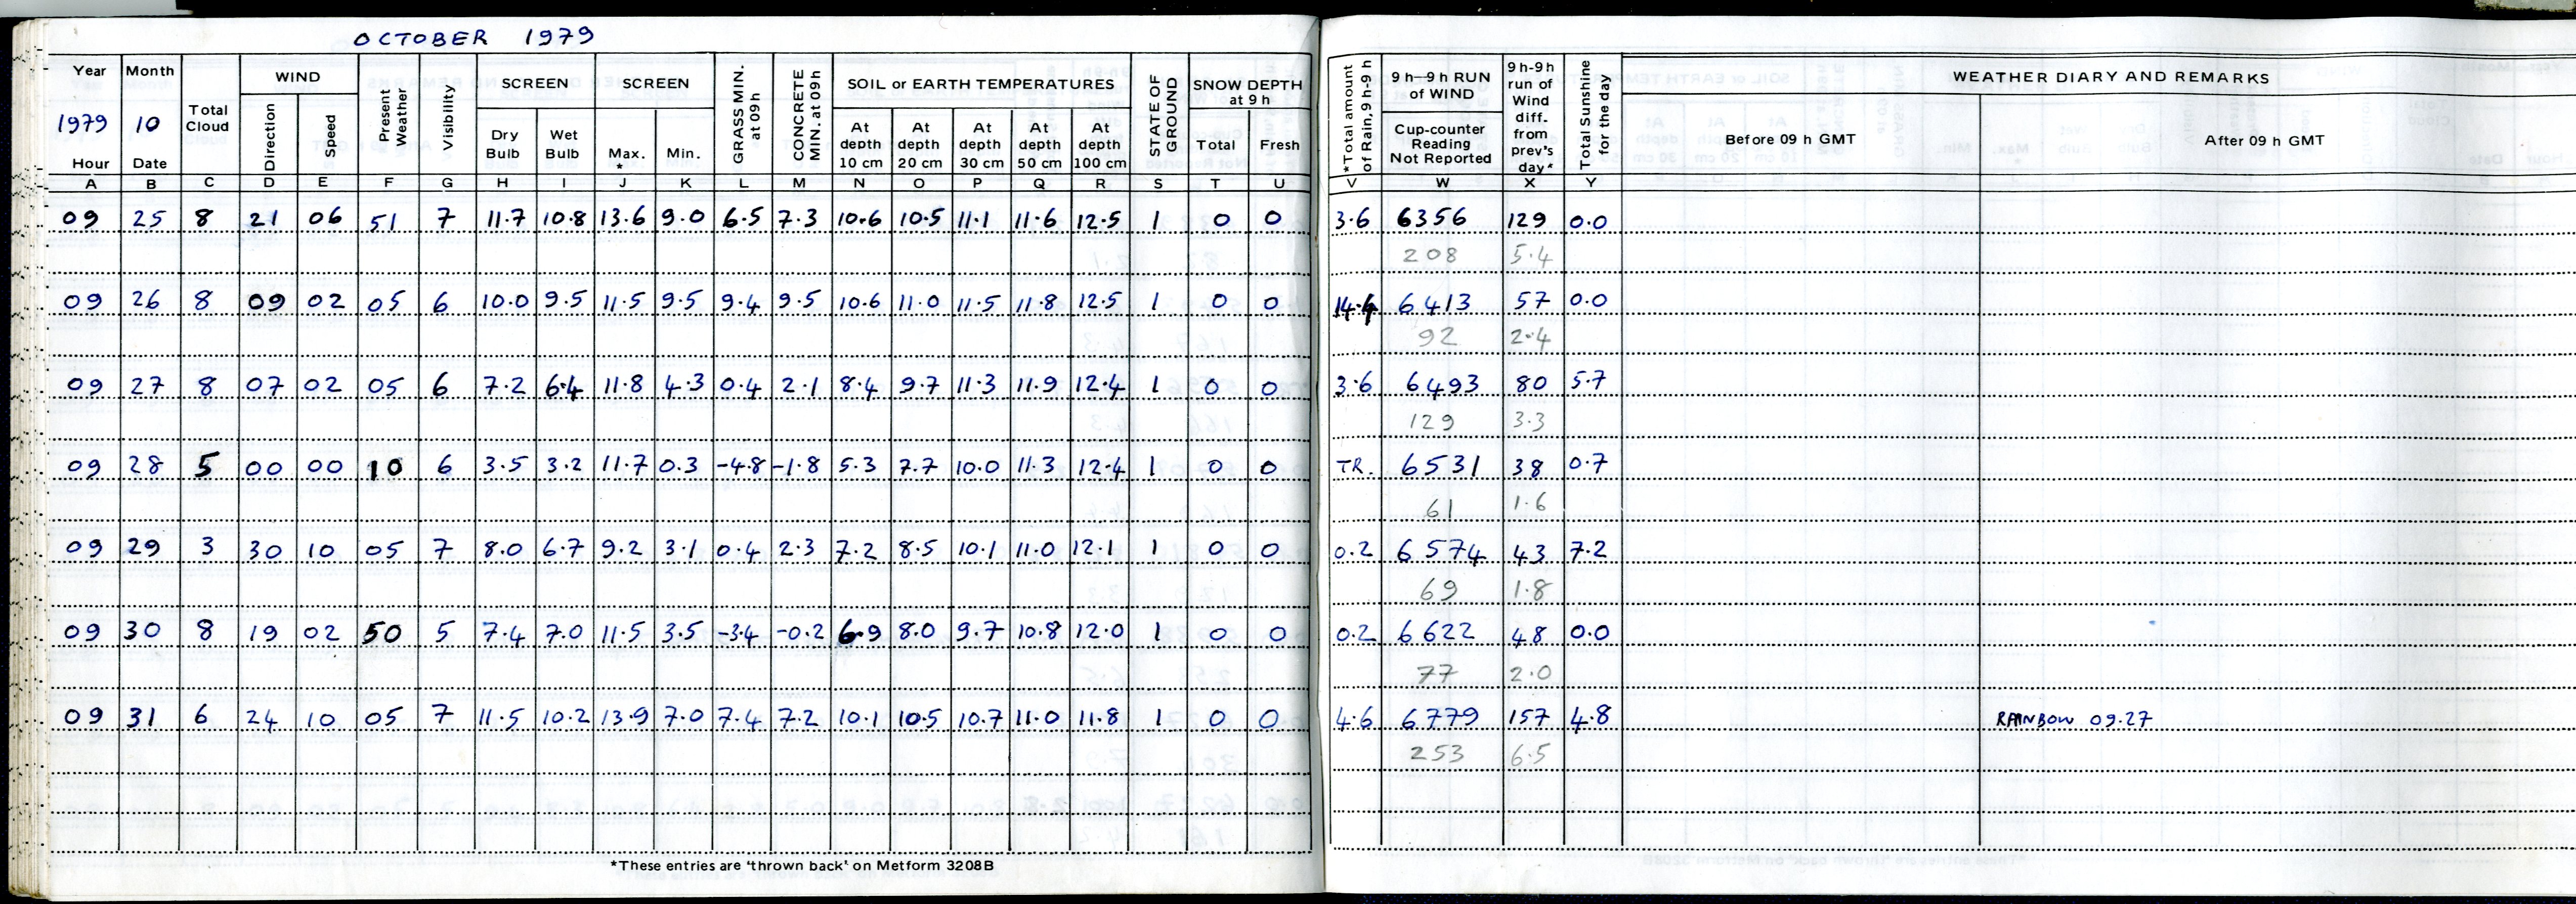 OCTOBER 1979
Year Month Total Cloud WIND Direction Speed Present Weather Visibility SCREEN Dry Bulb Wet Bulb SCREEN Max. * Min. GRASS MIN. at 09h CONCRETE MIN. at 09h SOIL or EARTH TEMPERATURES At depth 10 cm At depth 20 cm At depth 30 cm At depth 50 cm At depth 100 cm STATE OF GROUND SNOW DEPTH at 9 h Total Fresh *Total amount of Rain, 9h-9h 9 h—9 h RUN of WIND Cup-counter Reading Not Reported 9h-9h run of Wind diff. from prev's day* Total Sunshine for the day WEATHER DIARY AND REMARKS Before 09 h GMT After 09 h GMT
1979 10
Hour Date
A B C D E F G H I J K L M N O P Q R S T U V W X Y
09 25 8 21 06 51 7 11.7 10.8 13.6 9.0 6.5 7.3 10.6 10.5 11.1 11.6 12.5 1 0 0 3.6 6356 129 0.0
208 5.4
09 26 8 09 02 05 6 10.0 9.5 11.5 9.5 9.4 9.5 10.6 11.0 11.5 11.8 12.5 1 0 0 14.4 6413 57 0.0
92 2.4
09 27 8 07 02 05 6 7.2 6.4 11.8 4.3 0.4 2.1 8.4 9.7 11.3 11.9 12.4 1 0 0 3.6 6493 80 5.7
129 3.3
09 28 5 00 00 10 6 3.5 3.2 11.7 0.3 -4.8 -1.8 5.3 7.7 10.0 11.3 12.4 1 0 0 TR. 6531 38 0.7
61 1.6
09 29 3 30 10 05 7 8.0 6.7 9.2 3.1 0.4 2.3 7.2 8.5 10.1 11.0 12.1 1 0 0 0.2 6574 43 7.2
69 1.8
09 30 8 19 02 50 5 7.4 7.0 11.5 3.5 -3.4 -0.2 6.9 8.0 9.7 10.8 12.0 1 0 0 0.2 6622 48 0.0
77 2.0
09 31 6 24 10 05 7 11.5 10.2 13.9 7.0 7.4 7.2 10.1 10.5 10.7 11.0 11.8 1 0 0 4.6 6779 157 4.8 RAINBOW 09.27
253 6.5
*These entries are 'thrown back' on Metform 3208B